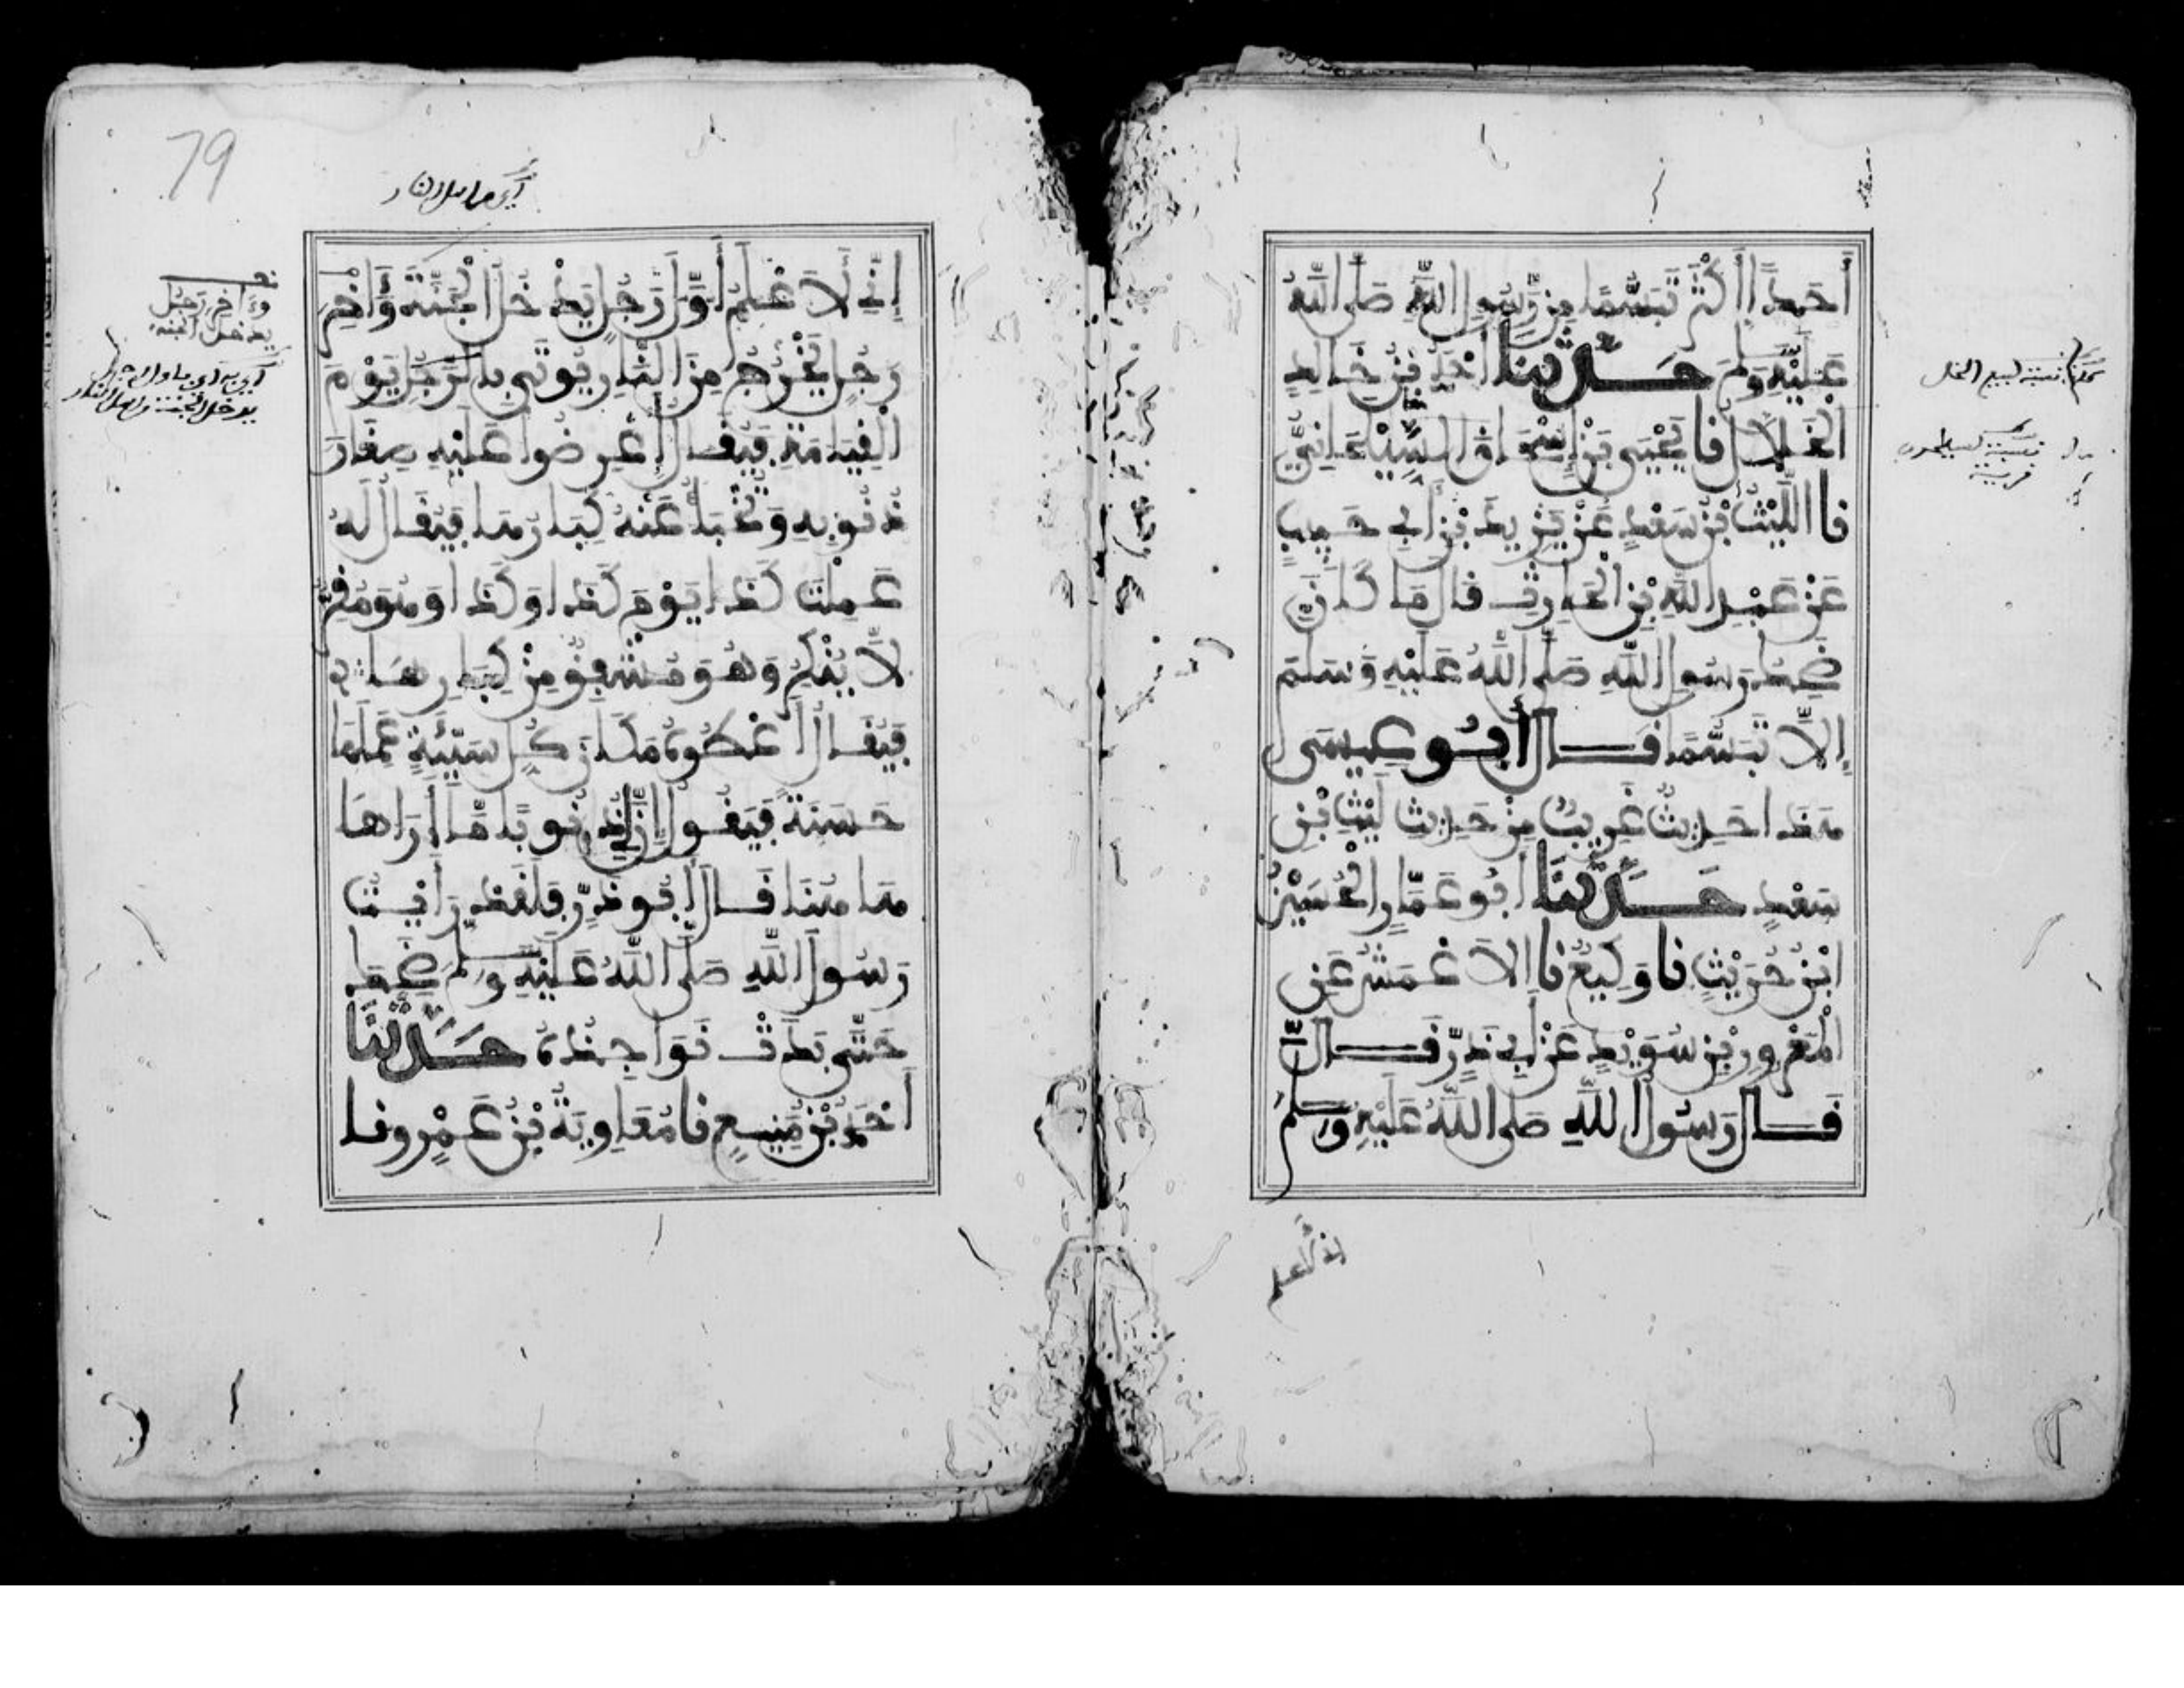 أَحَدًا أَكْثَرَ تَبَسُّمًا مِن رَّسُولِ اللَّهِ صَلَّى اللَّهُ
عَلَيْهِ وَسَلَّمَ حَدَّثَنَا أَحْمَدُ بْنُ خَالِدٍ
الْخَلَّالُ نا يَحْيَى بْنُ إِسْحَاقَ السَّيْلَحَانِيُّ
نا اللَّيْثُ بْنُ سَعْدٍ عَنْ يَزِيدَ بْنِ أَبِي حَبِيبٍ
عَنْ عَبْدِ اللَّهِ بْنِ الْحَارِثِ قَالَ مَا كَانَ
ضَحِكُ رَسُولِ اللَّهِ صَلَّى اللَّهُ عَلَيْهِ وَسَلَّمَ
إِلَّا تَبَسُّمًا قَالَ أَبُو عِيسَى
هَذَا حَدِيثٌ غَرِيبٌ مِنْ حَدِيثِ لَيْثِ بْنِ
سَعْدٍ حَدَّثَنَا أَبُو عَمَّارٍ الْحُسَيْنُ
ابْنُ حُرَيْثٍ نا وَكِيعٌ نا الأَعْمَشُ عَنِ
الْمَعْرُورِ بْنِ سُوَيْدٍ عَنْ أَبِي ذَرٍّ قَالَ
قَالَ رَسُولُ اللَّهِ صَلَّى اللَّهُ عَلَيْهِ وَسَلَّمَ
إني لأعلم
نسبة لبيع الخل
قرية
79
أي من أهل النار
إِنِّي لَأَعْلَمُ أَوَّلَ رَجُلٍ يَدْخُلُ الْجَنَّةَ وَآخِرَ
رَجُلٍ يَخْرُجُ مِنَ النَّارِ يُؤْتَى بِالرَّجُلِ يَوْمَ
الْقِيَامَةِ فَيُقَالُ أَعْرِضُوا عَلَيْهِ صِغَارَ
ذُنُوبِهِ وَتُخْبَأُ عَنْهُ كِبَارُهَا فَيُقَالُ لَهُ
عَمِلْتَ كَذَا يَوْمَ كَذَا وَكَذَا وَهُوَ مُقِرٌّ
لَا يُنْكِرُ وَهُوَ مُشْفِقٌ مِنْ كِبَارِهَا
فَيُقَالُ أَعْطُوهُ مَكَانَ كُلِّ سَيِّئَةٍ عَمِلَهَا
حَسَنَةً فَيَقُولُ إِنَّ لِي ذُنُوبًا مَا أَرَاهَا
هَا هُنَا قَالَ أَبُو ذَرٍّ فَلَقَدْ رَأَيْتُ
رَسُولَ اللَّهِ صَلَّى اللَّهُ عَلَيْهِ وَسَلَّمَ ضَحِكَ
حَتَّى بَدَتْ نَوَاجِذُهُ حَدَّثَنَا
أَحْمَدُ بْنُ مَنِيعٍ نا مُعَاوِيَةُ بْنُ عَمْرٍو نا
وآخر رجل
يدخل الجنة
يدخل الجنة من أهل النار